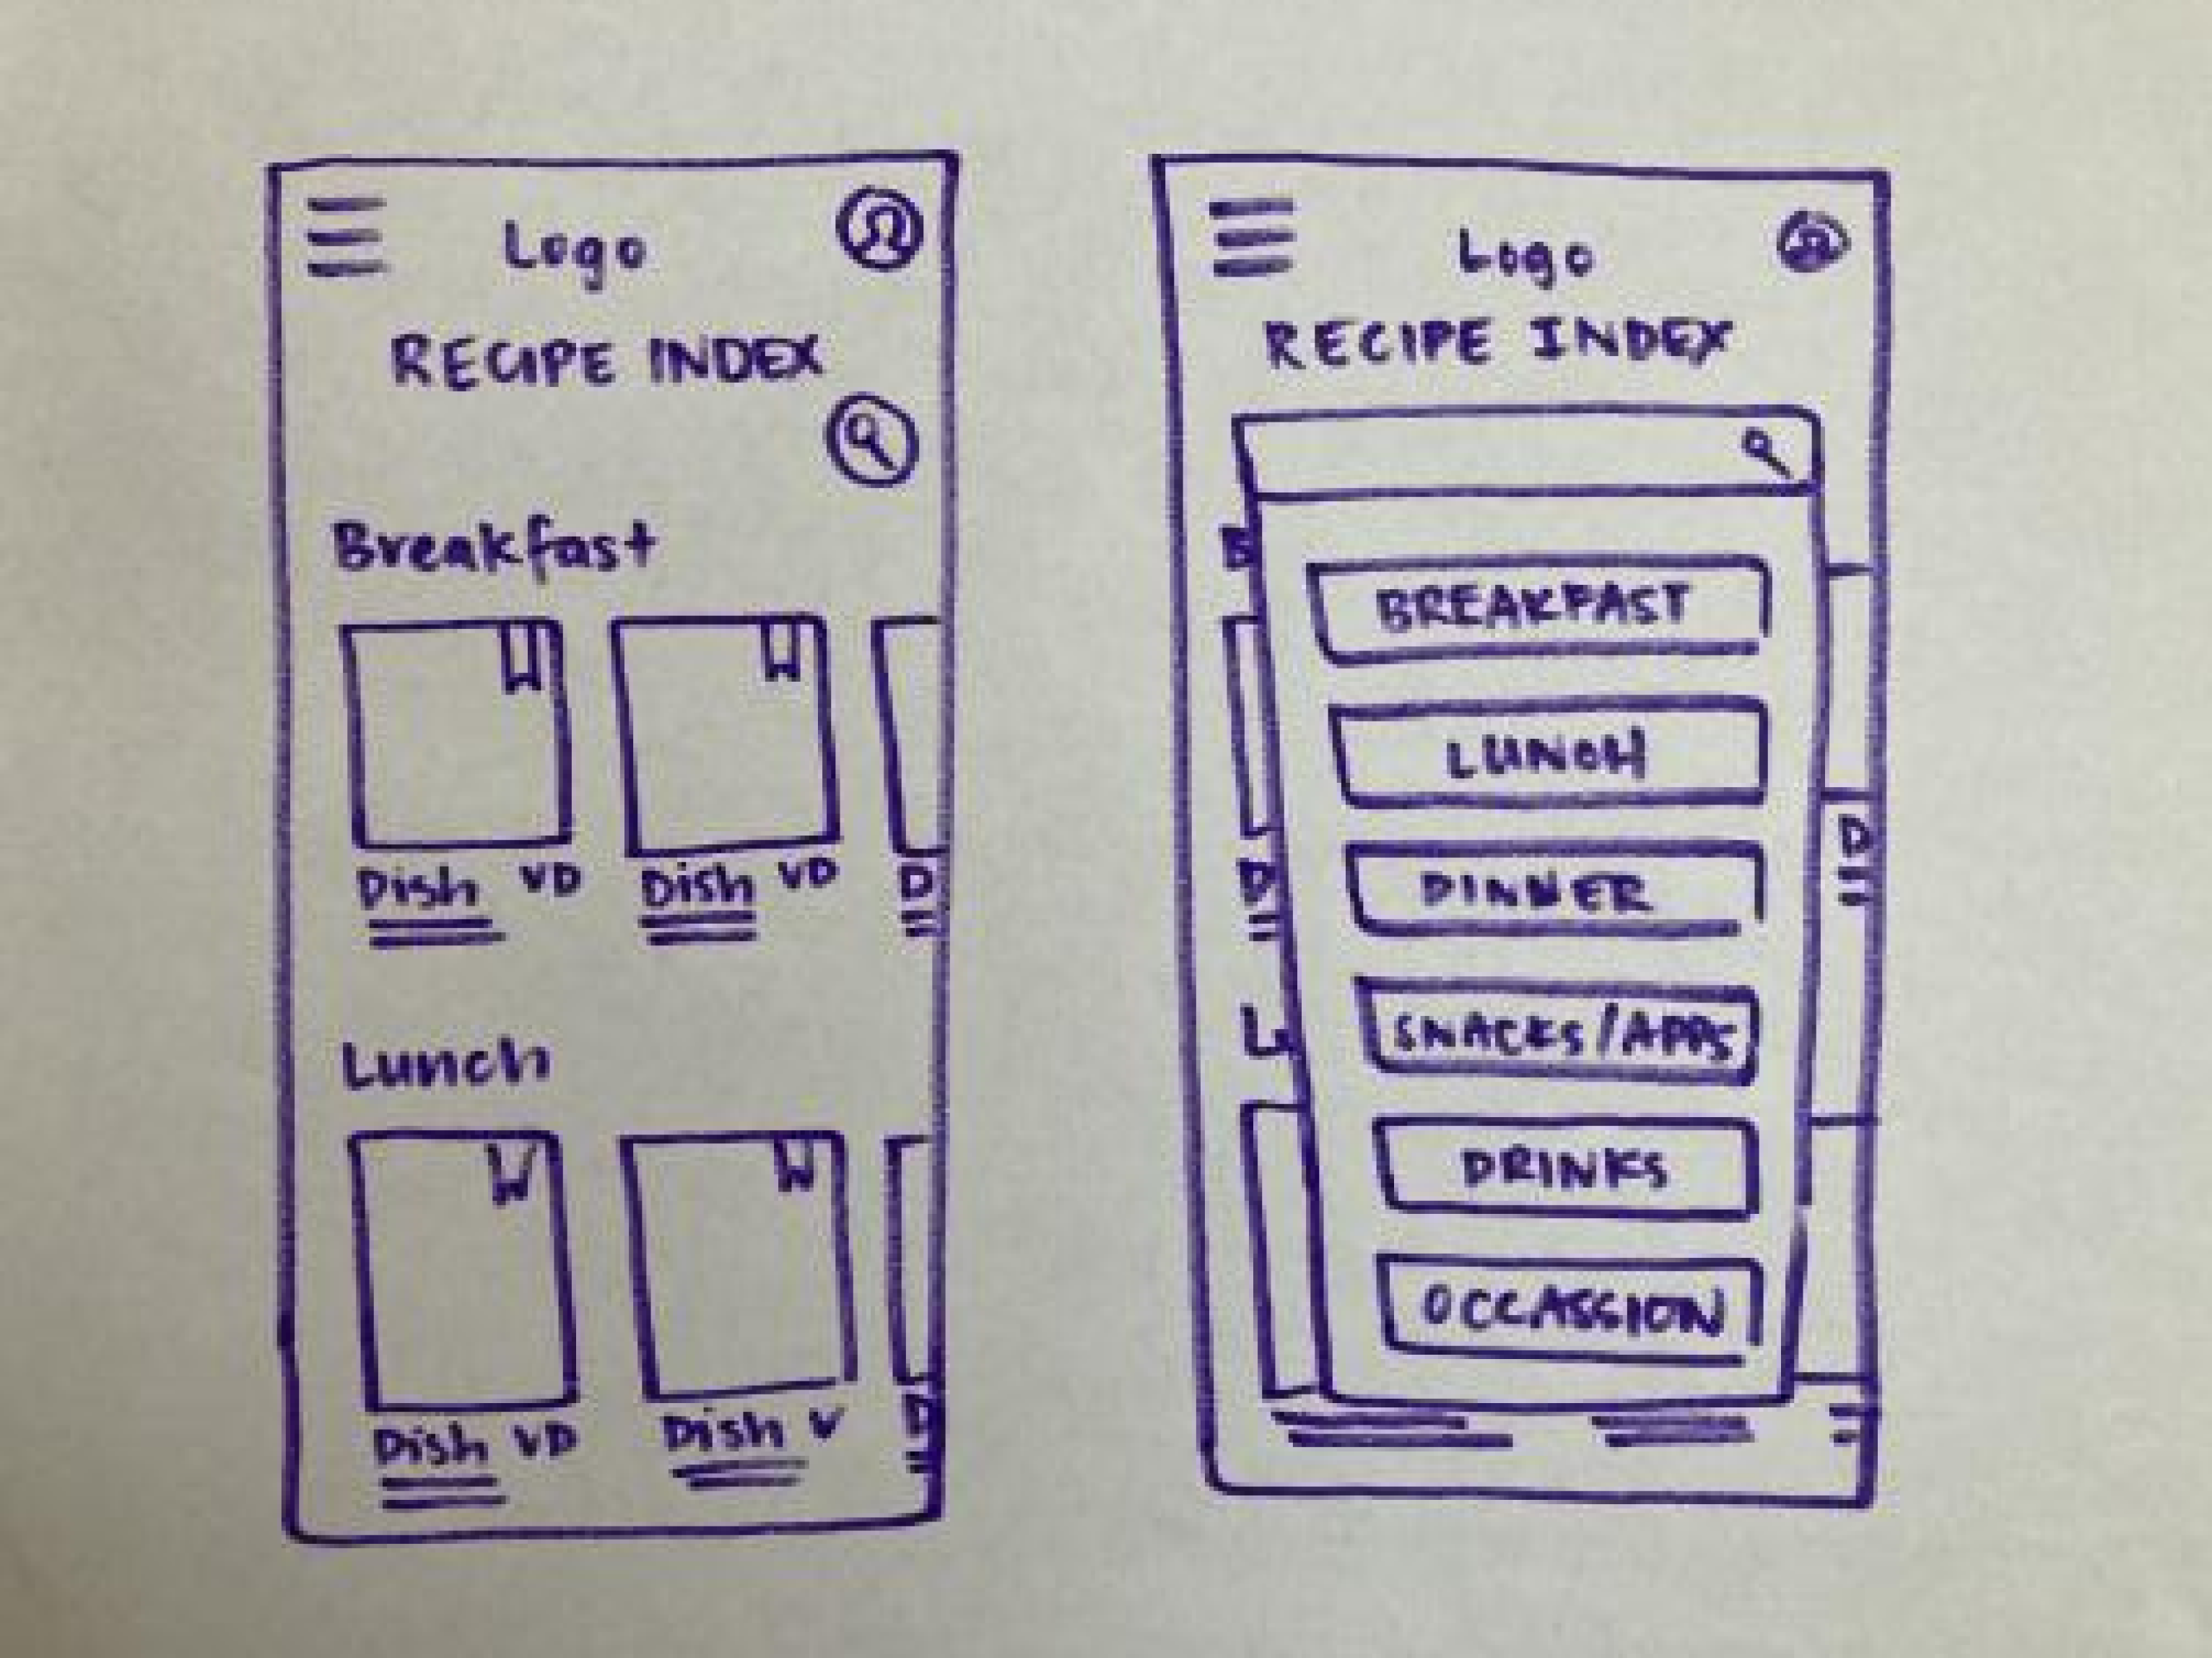 Logo
RECIPE INDEX
Breakfast
Dish VD Dish VD D
Lunch
Dish VD Dish V D
Logo
RECIPE INDEX
B
BREAKFAST
LUNCH
DINNER
D D
SNACKS/APPS
L
DRINKS
OCCASSION